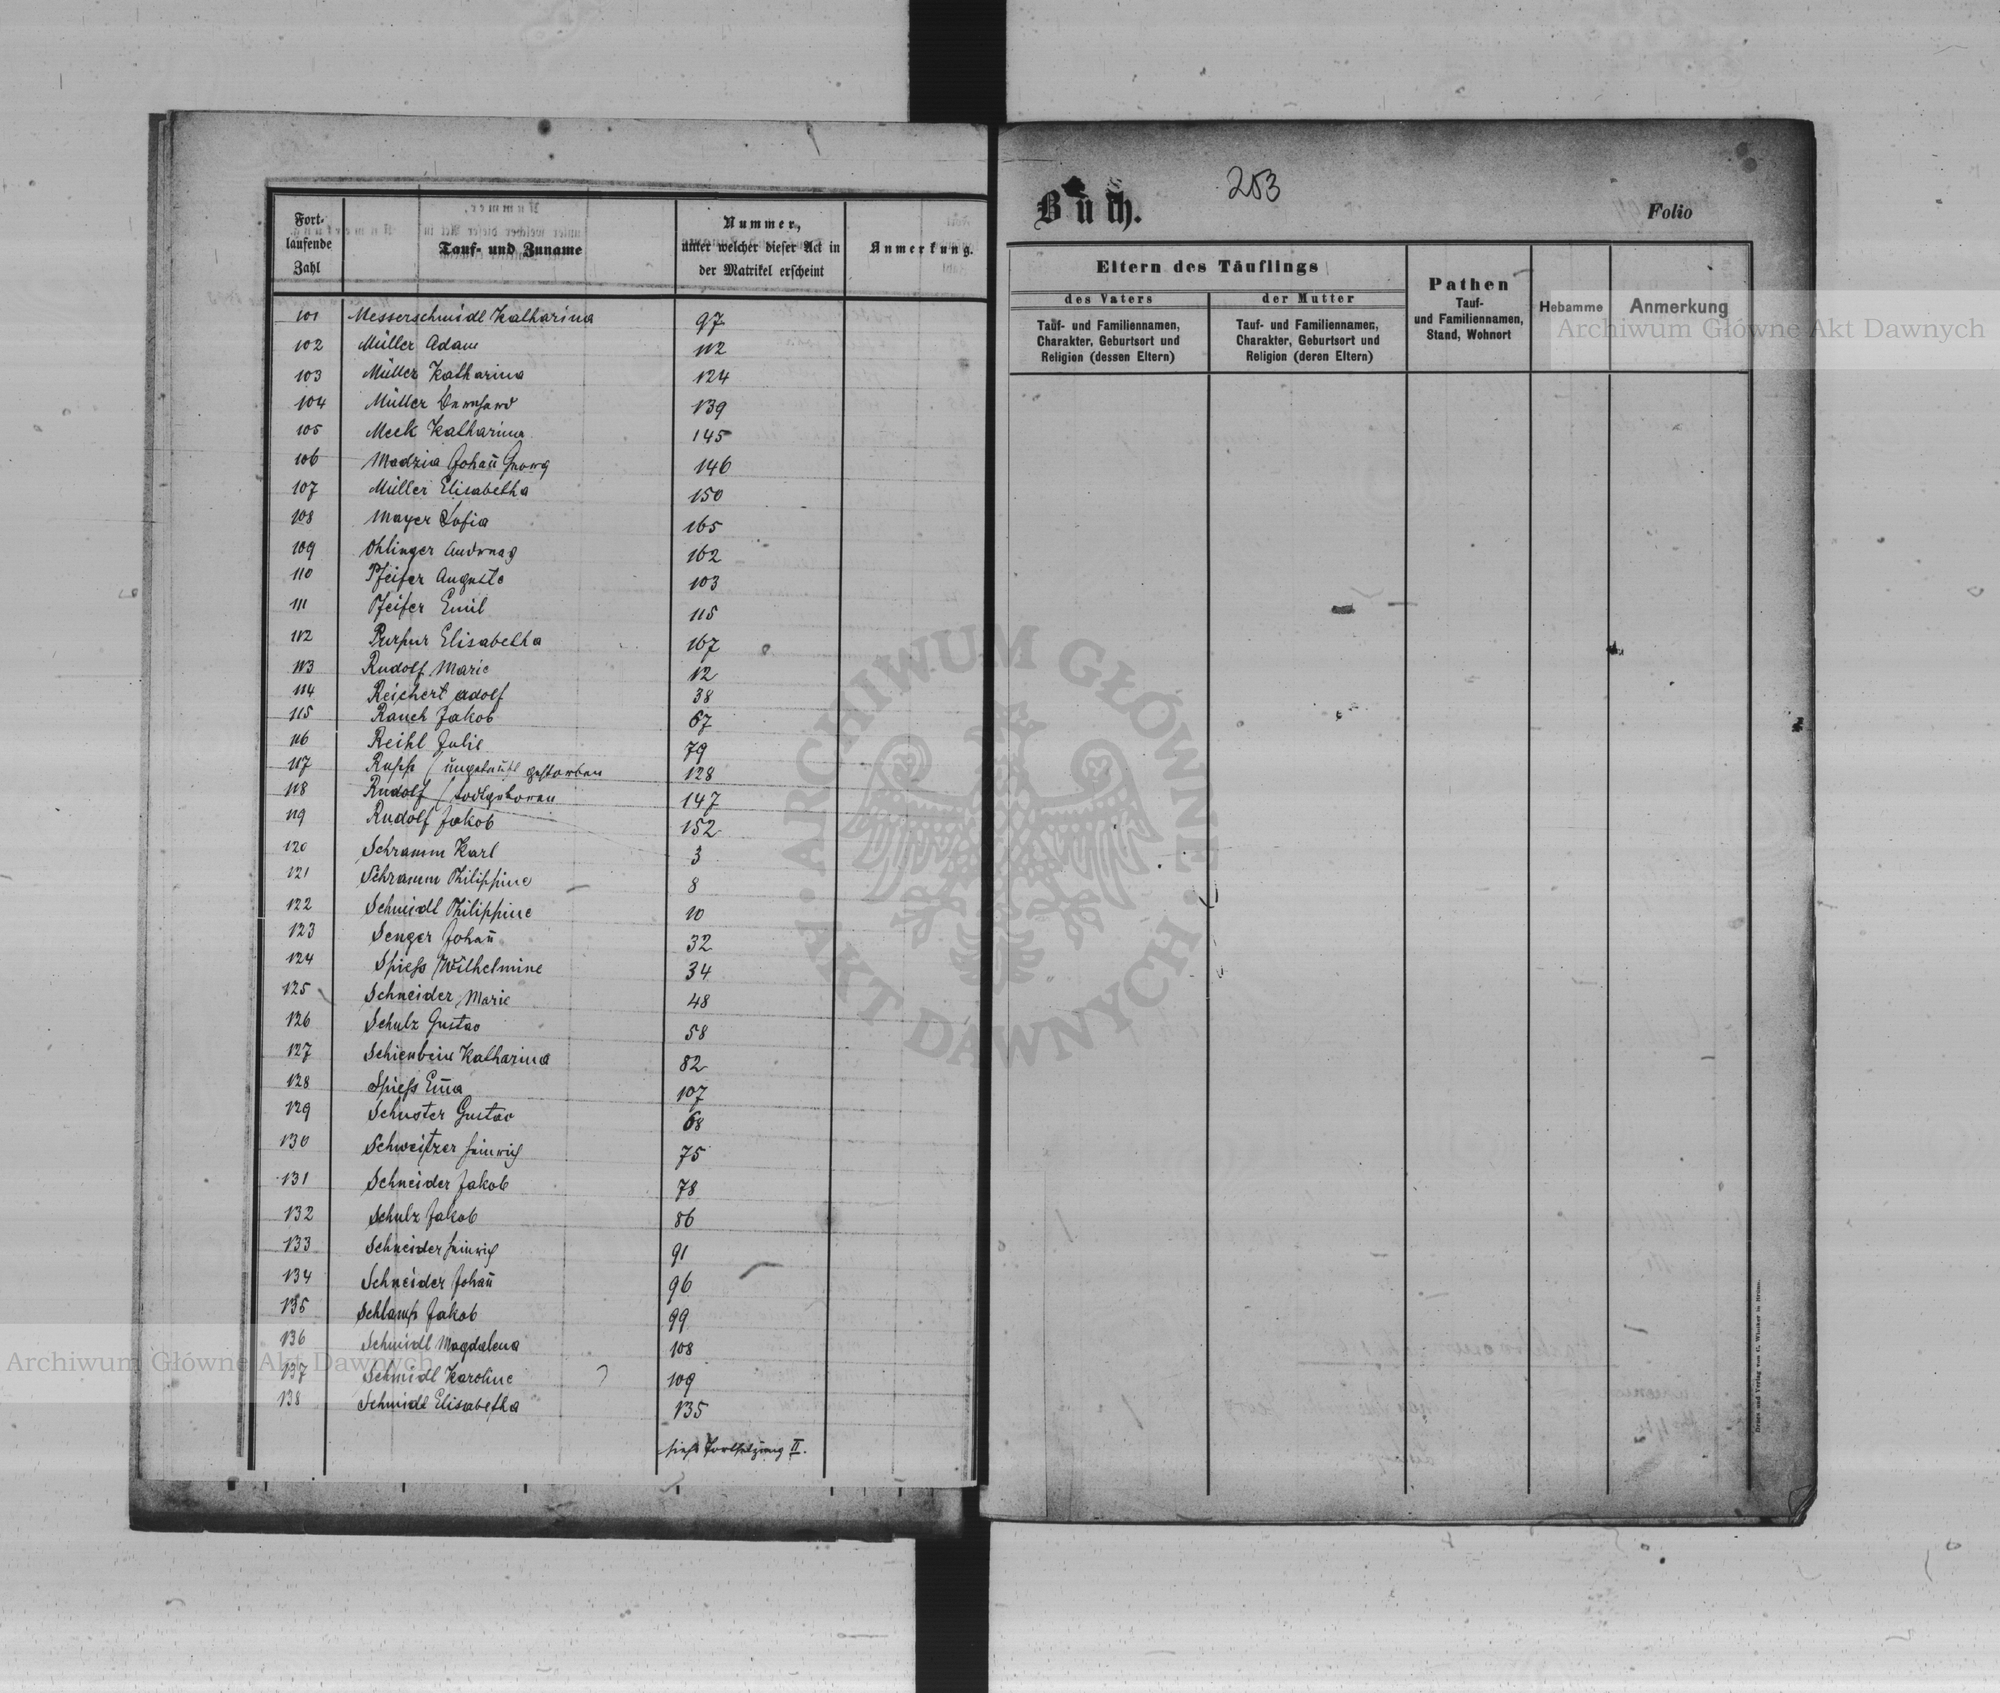 Fort-
laufende
Zahl
Tauf- und Zuname
Nummer,
unter welcher dieser Act in
der Matrikel erscheint
Anmerkung.
101 Messerschmidl Katharina 97
102 Müller Adam 112
103 Müller Katharina 124
104 Müller Bernhard 139
105 Meck Katharina 145
106 Madzia Johañ Georg 146
107 Müller Elisabetha 150
108 Mayer Sofia 165
109 Ohlinger Andreas 162
110 Pfeifer Auguste 103
111 Pfeifer Emil 115
112 Purpur Elisabetha 167
113 Rudolf Marie 12
114 Reichert Adolf 38
115 Rauch Jakob 67
116 Reihl Julie 79
117 Rupp / ungetauft gestorben 128
118 Rudolf / todtgeboren 147
119 Rudolf Jakob 152
120 Schramm Karl 3
121 Schramm Philippine 8
122 Schmidl Philippine 10
123 Senger Johañ 32
124 Spieß Wilhelmine 34
125 Schneider Marie 48
126 Schulz Gustav 58
127 Schienbein Katharina 82
128 Spieß Em̄a 107
129 Schuster Gustav 68
130 Schweitzer Heinrich 75
131 Schneider Jakob 78
132 Schulz Jakob 86
133 Schneider Heinrich 91
134 Schneider Johañ 96
135 Schlamp Jakob 99
136 Schmidl Magdalena 108
137 Schmidl Karoline 109
138 Schmidl Elisabetha 135
siehe Fortsetzung II.
Buch.
253
Folio
Eltern des Täuflings
des Vaters
Tauf- und Familiennamen,
Charakter, Geburtsort und
Religion (dessen Eltern)
der Mutter
Tauf- und Familiennamen,
Charakter, Geburtsort und
Religion (deren Eltern)
Pathen
Tauf-
und Familiennamen,
Stand, Wohnort
Hebamme
Anmerkung
Archiwum Główne Akt Dawnych
ARCHIWUM GŁÓWNE
AKT DAWNYCH
Archiwum Główne Akt Dawnych